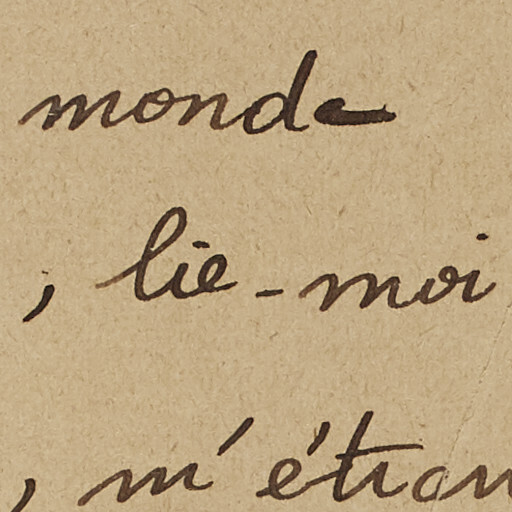 monde
, lie-moi
, m'étran